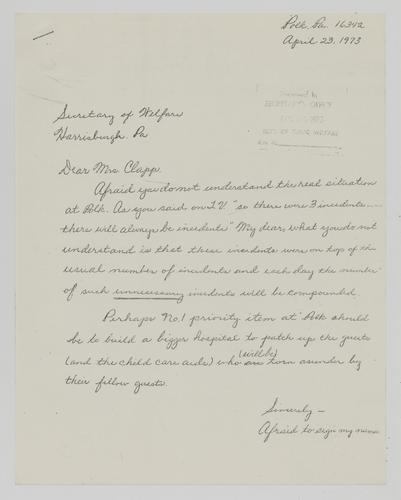 Polk, Pa. 16342
April 23, 1973
Received In
SECRETARY'S OFFICE
DEPT. OF PUBLIC WELFARE
Secretary of Welfare
Harrisburgh, Pa
Dear Mrs. Clapp.
Afraid you do not understand the real situation
at Polk. As you said on T.V. "so there were 3 incidents---
there will always be incidents" My dear, what you do not
understand is that these incidents were on top of the
usual number of incidents and each day the number
of such unnecessary incidents will be compounded.
Perhaps No. 1 priority item at Polk should
be to build a bigger hospital to patch up the guests
(and the child care aids) who are (will be) torn asunder by
their fellow guests.
Sincerely -
Afraid to sign my name